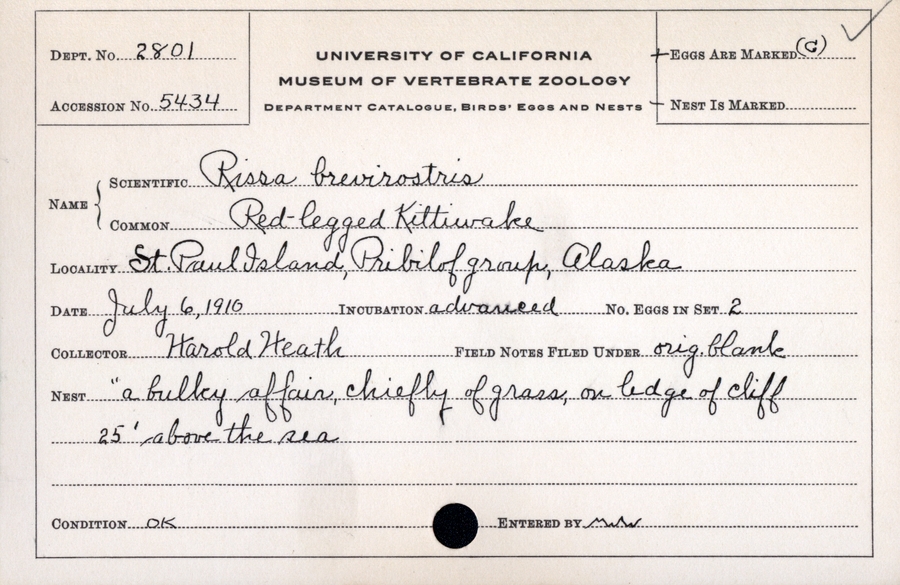 DEPT. No. 2801
UNIVERSITY OF CALIFORNIA
EGGS ARE MARKED (C)
MUSEUM OF VERTEBRATE ZOOLOGY
ACCESSION No. 5434
DEPARTMENT CATALOGUE, BIRDS' EGGS AND NESTS
NEST IS MARKED
NAME
SCIENTIFIC Rissa brevirostris
COMMON Red-legged Kittiwake
LOCALITY St. Paul Island, Pribilof group, Alaska
DATE July 6, 1910 INCUBATION advanced No. EGGS IN SET 2
COLLECTOR Harold Heath FIELD NOTES FILED UNDER orig. blank
NEST "a bulky affair, chiefly of grass, on ledge of cliff
25' above the sea
CONDITION OK ENTERED BY